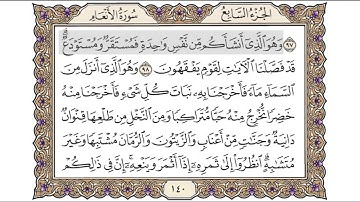 الجزء السابع سورة الأنعام
٩٧ وهو الذي أنشأكم من نفس واحدة فمستقر ومستودع
قد فصلنا الآيات لقوم يفقهون ٩٨ وهو الذي أنزل من
السماء ماء فأخرجنا به نبات كل شيء فأخرجنا منه
خضرا نخرج منه حبا متراكبا ومن النخل من طلعها قنوان
دانية وجنات من أعناب والزيتون والرمان مشتبها وغير
متشابه انظروا إلى ثمره إذا أثمر وينعه إن في ذالكم
١٤٠